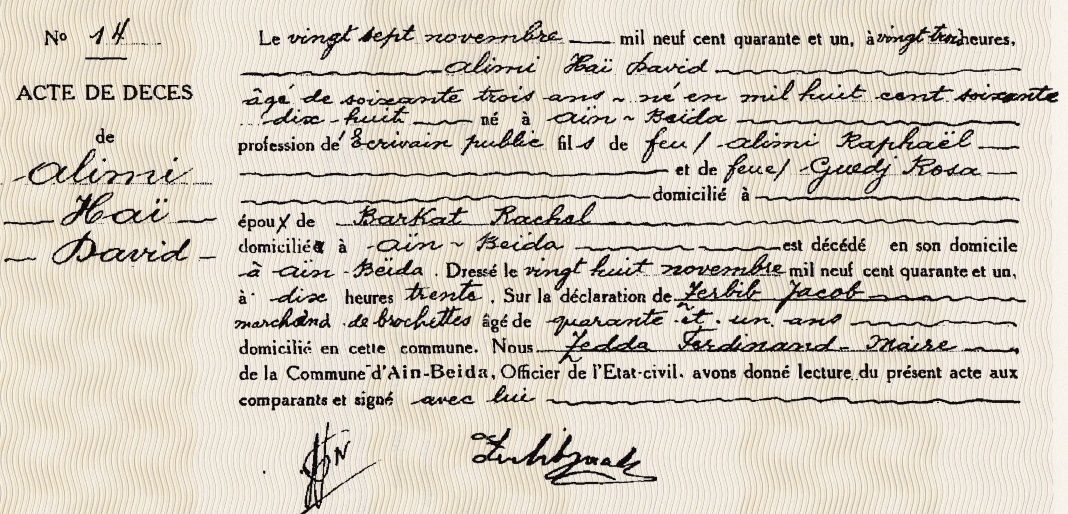 No 14
ACTE DE DECES
de
Alimi
Haï
David
Le vingt sept novembre mil neuf cent quarante et un, à vingt trois heures,
Alimi Haï David
âgé de soixante trois ans - né en mil huit cent soixante
dix-huit né à Aïn-Beida
profession de Ecrivain public fils de feu/ Alimi Raphaël
et de feue/ Guedj Rosa
domicilié à
époux de Barkat Rachel
domicilié à Aïn-Beida est décédé en son domicile
à Aïn-Beïda. Dressé le vingt huit novembre mil neuf cent quarante et un,
à dix heures trente. Sur la déclaration de Zerbib Jacob
marchand de brochettes âgé de quarante et un ans
domicilié en cette commune. Nous Zedda Ferdinand - Maire
de la Commune d'Ain-Beida, Officier de l'Etat-civil. avons donné lecture du présent acte aux
comparants et signé avec lui